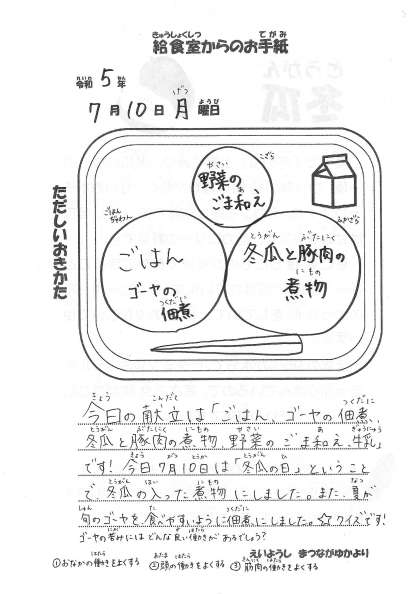 きゅうしょくしつ てがみ
給食室からのお手紙
れいわ ねん
令和 5 年
がつ にち げつ ようび
7月10日月曜日
ただしいおきかた
こざら
やさい あ
野菜の
ごま和え
ごはん
ぢゃわん
ごはん
ゴーヤの
つくだに
佃煮
ふかざら
とうがん ぶたにく
冬瓜と豚肉の
にもの
煮物
きょう こんだて つくだに
今日の献立は「ごはん、ゴーヤの佃煮、
とうがん ぶたにく にもの やさい あ ぎゅうにゅう
冬瓜と豚肉の煮物、野菜のごま和え、牛乳」
きょう がつ とうがん ひ
です!今日7月10日は「冬瓜の日」ということ
とうがん はい にもの なつ
で、冬瓜の入った煮物にしました。また、夏が
しゅん た つくだに
旬のゴーヤを食べやすいように佃煮にしました。☆クイズです!
にが はたら
ゴーヤの苦みにはどんな良い働きがあるでしょう?
えいようし まつながゆかより
はたら あたま はたら きんにく はたら
①おなかの働きをよくする ②頭の働きをよくする ③筋肉の働きをよくする